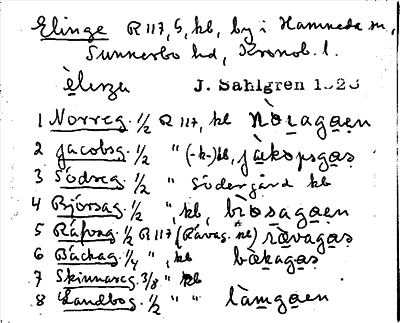 Elinge R 117, 5, kb, by i Hamneda sn,
Sunnerbo hd, Kronob. l.
èlıŋa J. Sahlgren 1926
1 Norreg. 1/2 R 117, kb nòragaen
2 Jacobsg. 1/2 " (-k-) kb, jàkopsgas
3 Södreg 1/2 " Södergård kb
4 Bjórsag. 1/2 ", kb, bìosagaen
5 Råfvag. 1/2 R 117 (Råvag. kb) ràvagas
6 Backag 1/4 ", kb bàkagas
7 Skinnareg. 3/8 " kb
8 Landbog. 1/2 " " làmgaen